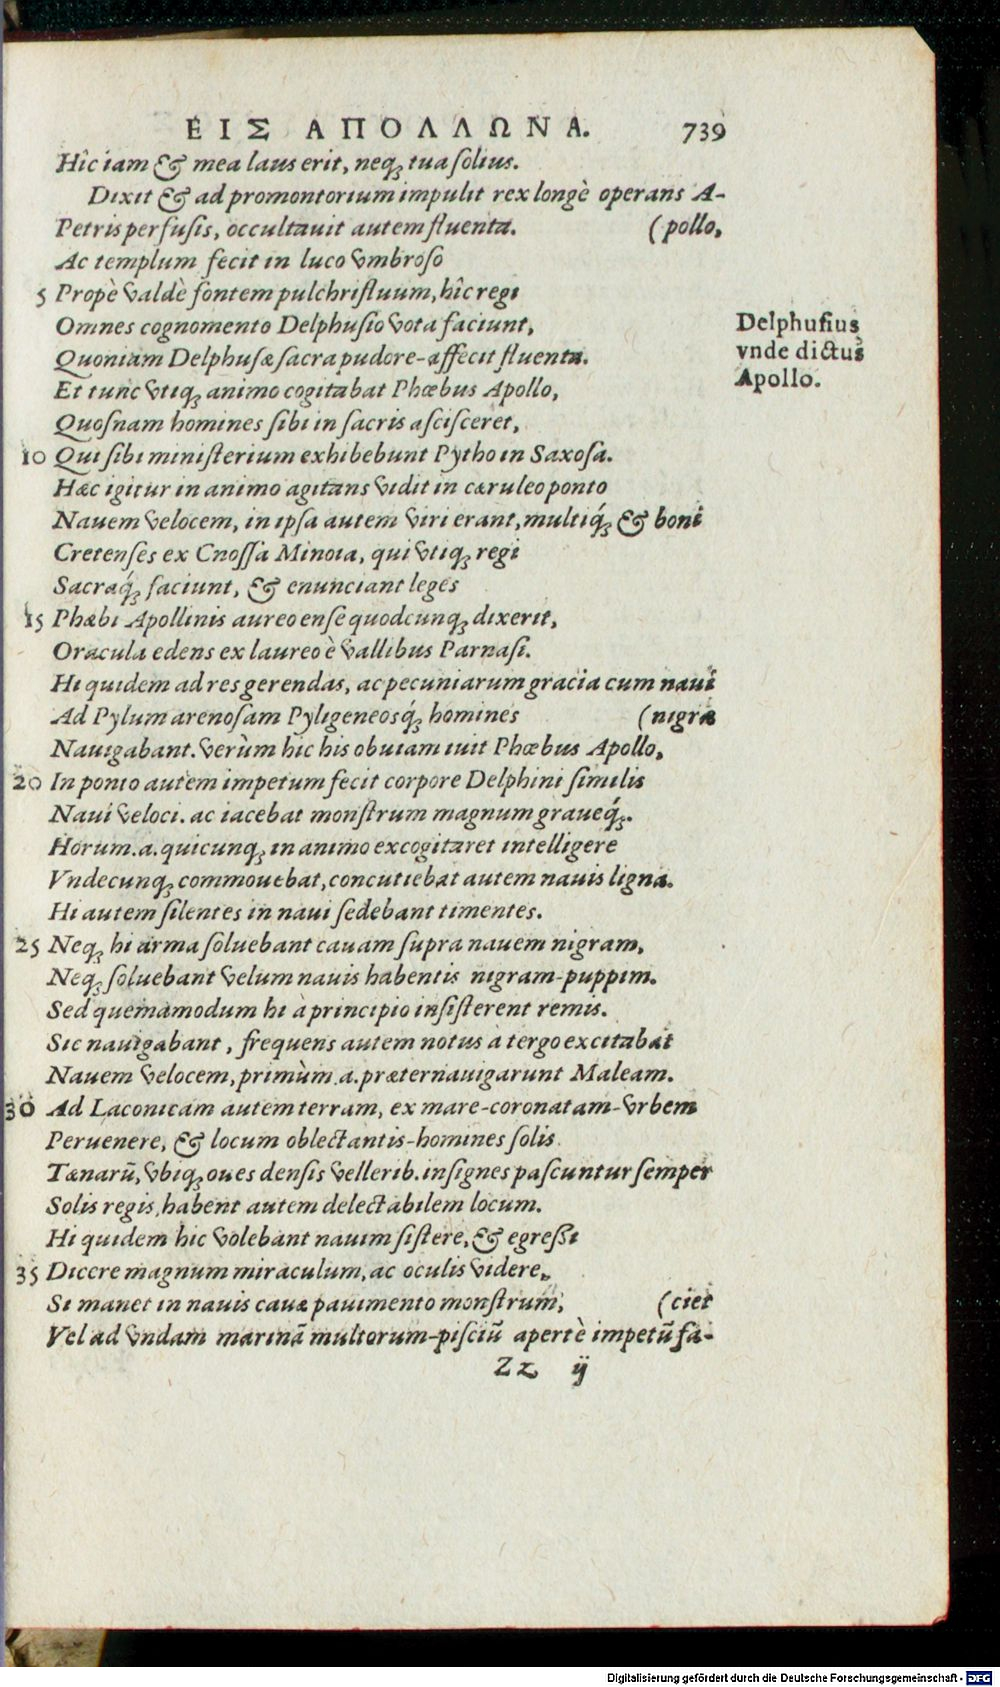 ΕΙΣ ΑΠΟΛΛΩΝΑ. 739
Hîc iam & mea laus erit, neqꝫ tua solius.
Dixit & ad promontorium impulit rex longè operans A-
Petris perfusis, occultauit autem fluenta. (pollo,
Ac templum fecit in luco vmbroso
5 Propè valdè fontem pulchrifluum, hîc regi
Omnes cognomento Delphusio vota faciunt,
Quoniam Delphusæ sacra pudore-affecit fluenta.
Et tunc vtiqꝫ animo cogitabat Phœbus Apollo,
Quosnam homines sibi in sacris ascisceret,
10 Qui sibi ministerium exhibebunt Pytho in Saxosa.
Hæc igitur in animo agitans vidit in cæruleo ponto
Nauem velocem, in ipsa autem viri erant, multiq́ꝫ & boni
Cretenses ex Cnossa Minoia, qui vtiqꝫ regi
Sacraq́ꝫ faciunt, & enunciant leges
15 Phœbi Apollinis aureo ense quodcunqꝫ dixerit,
Oracula edens ex laureo è vallibus Parnasi.
Hi quidem ad res gerendas, ac pecuniarum gracia cum naui
Ad Pylum arenosam Pyligeneosq́ꝫ homines (nigra
Nauigabant. verùm hic his obuiam iuit Phœbus Apollo,
20 In ponto autem impetum fecit corpore Delphini similis
Naui veloci. ac iacebat monstrum magnum graueq́ꝫ.
Horum .a. quicunqꝫ in animo excogitaret intelligere
Vndecunqꝫ commouebat, concutiebat autem nauis ligna.
Hi autem silentes in naui sedebant timentes.
25 Neqꝫ hi arma soluebant cauam supra nauem nigram,
Neqꝫ soluebant velum nauis habentis nigram-puppim.
Sed quemamodum hi à principio insisterent remis.
Sic nauigabant, frequens autem notus à tergo excitabat
Nauem velocem, primùm .a. præternauigarunt Maleam.
30 Ad Laconicam autem terram, ex mare-coronatam-vrbem
Peruenere, & locum oblectantis-homines solis
Tænarū, vbiqꝫ oues densis vellerib. insignes pascuntur semper
Solis regis, habent autem delectabilem locum.
Hi quidem hic volebant nauim sistere, & egressi
35 Dicere magnum miraculum, ac oculis videre,
Si manet in nauis cauæ pauimento monstrum, (ciet
Vel ad vndam marinā multorum-pisciū apertè impetū fa-
Zz ij
Delphusius
vnde dictus
Apollo.
Digitalisierung gefördert durch die Deutsche Forschungsgemeinschaft - DFG